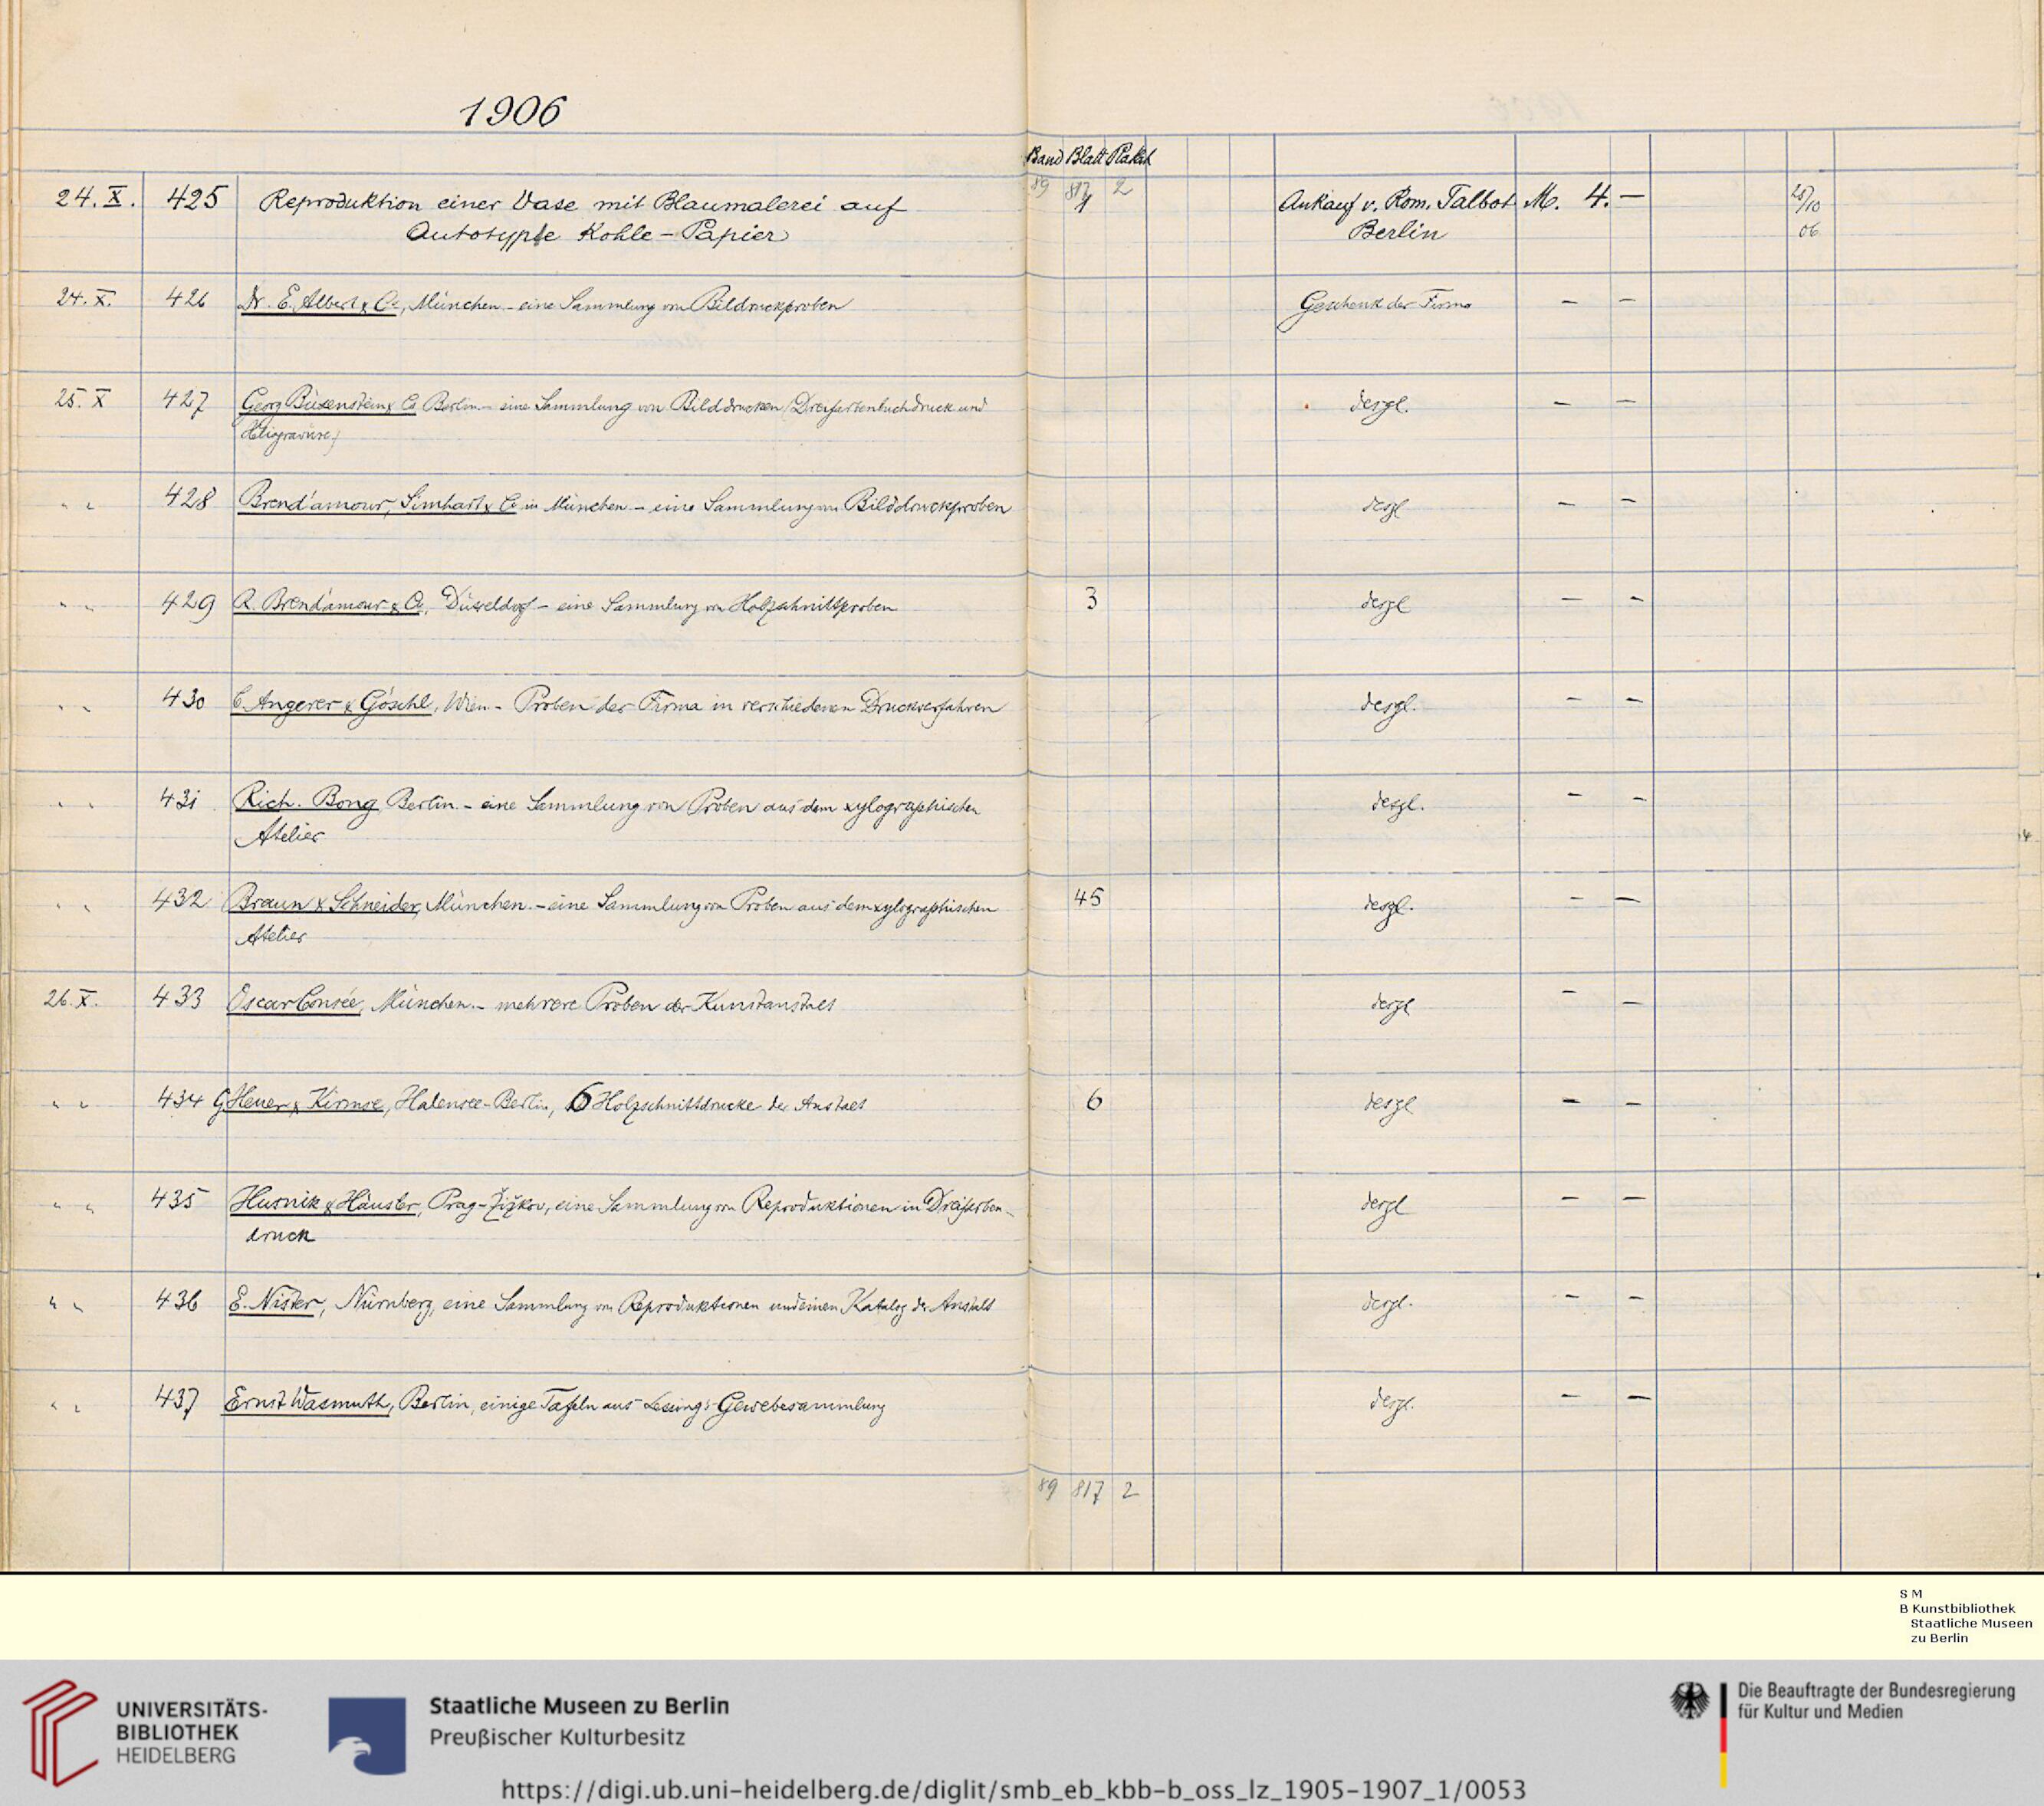 1906
Band Blatt Plakat
24. X. 425 Reproduktion einer Vase mit Blaumalerei auf 89 817 2 Ankauf v. Rom. Talbot M. 4. — 28/10
1
Autotypie Kohle-Papier Berlin 06
24. X. 426 Dr. E. Albert & Co, München - eine Sammlung von Bilddruckproben Geschenk der Firma — —
25. X 427 Georg Büxenstein & Co Berlin - eine Sammlung von Bilddrucken (Dreifarbenbuchdruck und desgl. — —
Heliogravüre)
" " 428 Brend'amour, Simhart & Co in München - eine Sammlung von Bilddruckproben desgl — —
" " 429 R. Brend'amour & Co, Düsseldorf - eine Sammlung von Holzschnittproben 3 desgl — —
" " 430 C. Angerer & Göschl, Wien - Proben der Firma in verschiedenen Druckverfahren desgl. — —
" " 431 Rich. Bong Berlin. - eine Sammlung von Proben aus dem xylographischen desgl. — —
Atelier
" " 432 Braun & Schneider, München. - eine Sammlung von Proben aus dem xylographischen 45 desgl. — —
Atelier
26. X. 433 Oscar Consée, München. - mehrere Proben der Kunstanstalt desgl — —
" " 434 G Heuer & Kirmse, Halensee-Berlin, 6 Holzschnittdrucke der Anstalt 6 desgl — —
" " 435 Husnik & Häusler, Prag-Žižkov, eine Sammlung von Reproduktionen in Dreifarben- desgl — —
druck
" " 436 E. Nister, Nürnberg, eine Sammlung von Reproduktionen und einen Katalog der Anstalt desgl. — —
" " 437 Ernst Wasmuth, Berlin, einige Tafeln aus Lessing's Gewebesammlung desgl. — —
89 817 2
S M
B Kunstbibliothek
Staatliche Museen
zu Berlin
UNIVERSITÄTS-
BIBLIOTHEK
HEIDELBERG
Staatliche Museen zu Berlin
Preußischer Kulturbesitz
Die Beauftragte der Bundesregierung
für Kultur und Medien
https://digi.ub.uni-heidelberg.de/diglit/smb_eb_kbb-b_oss_lz_1905-1907_1/0053